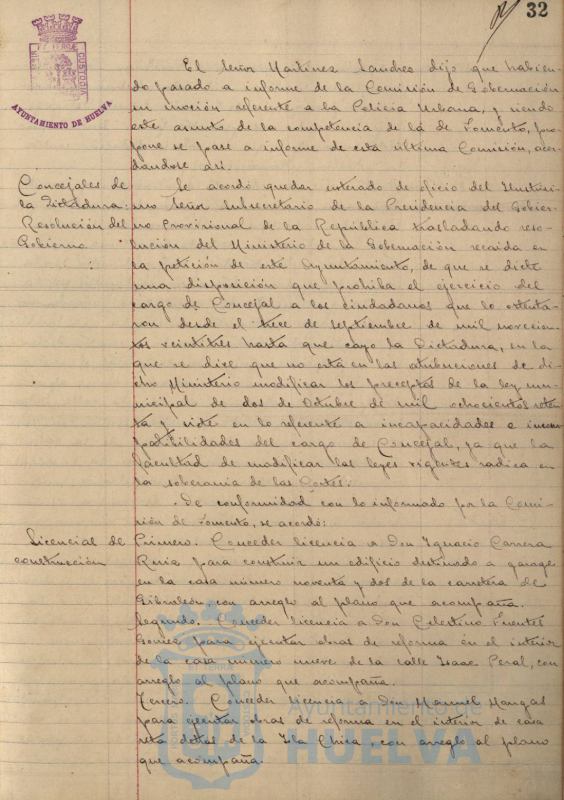 32
AYUNTAMIENTO DE HUELVA
El Señor Martínez Sandres dijo que habien-
do pasado a informe de la Comisión de Gobernación
su moción referente a la Policía Urbana, y siendo
este asunto de la competencia de la de Fomento, pro-
pone se pase a informe de esta última Comisión, acor-
dándose así.
Concejales de
la Dictadura:
Resolución del
Gobierno
Se acordó quedar enterado de oficio del Ilustrísi-
mo Señor Subsecretario de la Presidencia del Gobier-
no Provisional de la República trasladando reso-
lución del Ministerio de la Gobernación recaída en
la petición de este Ayuntamiento, de que se dicte
una disposición que prohiba el ejercicio del
cargo de Concejal a los ciudadanos que lo ostenta-
ron desde el trece de septiembre de mil novecien-
tos veintitrés hasta que cayó la Dictadura, en la
que se dice que no está en las atribuciones de di-
cho Ministerio modificar los preceptos de la ley mu-
nicipal de dos de Octubre de mil ochocientos seten-
ta y siete en lo referente a incapacidades e incom-
patibilidades del cargo de Concejal, ya que la
facultad de modificar las leyes vigentes radica en
la soberanía de las Cortes.
De conformidad con lo informado por la Comi-
sión de Fomento, se acordó:
Licencias de
construcción
Primero. Conceder licencia a Don Ignacio Carrera
Ruiz para construir un edificio destinado a garage
en la casa número noventa y dos de la carretera de
Gibraleón, con arreglo al plano que acompaña.
Segundo. Conceder licencia a Don Celestino Fuentes
Gómez para ejecutar obras de reforma en el interior
de la casa número nueve de la calle Isaac Peral, con
arreglo al plano que acompaña.
Tercero. Conceder licencia a Don Manuel Mangas
para ejecutar obras de reforma en el interior de casa
de la Isla Chica, con arreglo al plano
que acompaña.
Ayuntamiento de
HUELVA